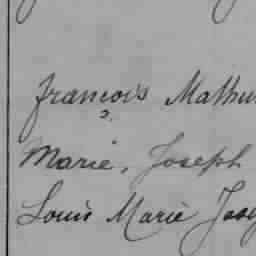 françois Mathu
Marie, Joseph
Louis Marie Jose